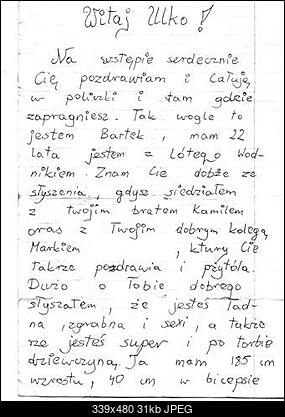 Witaj Ulko!
Na wstępie serdecznie
Cię pozdrawiam i całuję
w policzki i tam gdzie
zapragniesz. Tak wogle to
jestem Bartek, mam 22
lata jestem z Lótego Wod-
nikiem. Znam Cie dobże ze
słyszenia, gdysz siedziałem
z twójim bratem Kamilem
oraz z Twojim dobrym kolegą
Markiem , ktury Cie
Takrze pozdrawia i przytóla.
Dużo o Tobie dobrego
słyszałem, że jesteś ład-
na, zgrabna i sexi, a takrze
rze jesteś super i po torbie
dziewczyną. Ja mam 185 cm
wzrostu, 40 cm w bicepsie
339x480 31kb JPEG